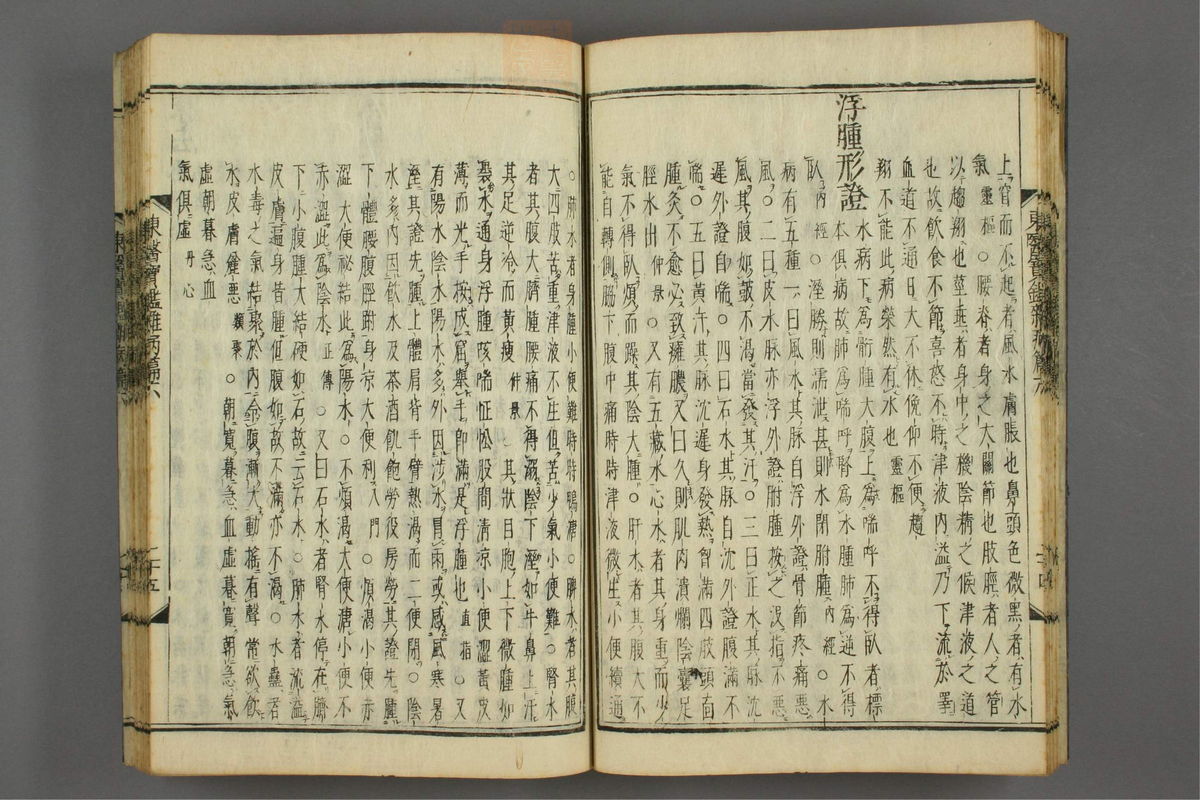 上窅而不起者風水膚脹也鼻頭色微黑者有水
氣靈樞○腰脊者身之大關節也肢脛者人之管
以趨翔也莖垂者身中之機陰精之候津液之道
也故飲食不節喜怒不時津液內溢乃下流於睪
血道不通日大不休俛仰不便趨
翔不能此病榮然有水也靈樞
浮腫形證
水病下為胕腫大腹上為喘呼不得臥者標
本俱病故肺為喘呼腎為水腫肺為逆不得
臥內經○溼勝則濡泄甚則水閉胕腫內經○水
病有五種一曰風水其脉自浮外證骨節疼痛惡
風○二曰皮水脉亦浮外證胕腫按之沒指不惡
風其腹如皷不渴當發其汗○三曰正水其脉沈
遲外證自喘○四曰石水其脉自沈外證腹滿不
喘○五曰黃汗其脉沈遲身發熱胷滿四肢頭面
腫久不愈必致癰膿又曰久則肌肉潰爛陰囊足
脛水出仲景○又有五藏水心水者其身重而少
氣不得臥煩而躁其陰大腫○肝水者其腹大不
能自轉側脇下腹中痛時時津液微生小便續通
○肺水者身腫小便難時時鴨溏○脾水者其腹
大四肢苦重津液不生但苦少氣小便難○腎水
者其腹大臍腫腰痛不得溺陰下溼如牛鼻上汗
其足逆冷而黃瘦仲景○其狀目胞上下微腫如
裂水通身浮腫咳喘怔忪股間清涼小便澀黃皮
薄而光手按成窟舉手卽滿是浮腫也直指○又
有陽水陰水陽水多外因涉水冒雨或感風寒暑
溼其證先腫上體肩背手臂熱渴而二便閉○陰
水多內因飲水及茶酒飢飽勞役房勞其證先腫
下體腰腹脛胕身涼大便利入門○煩渴小便赤
澀大便祕結此為陽水○不煩渴大便溏小便不
赤澀此為陰水正傳○又曰石水者腎水停在臍
下小腹腫大結硬如石故云石水○肺水者流溢
皮膚遍身昔腫但腹如故不滿亦不渴○水蠱者
水毒之氣結聚於內令腹漸大動搖有聲常欲飲
水皮膚麤惡類聚○朝寬暮急血虛暮寬朝急氣
虛朝暮急血
氣俱虛丹心
東醫寶鑑雜病篇六
二十五
東醫寶鑑雜病篇六
二十四